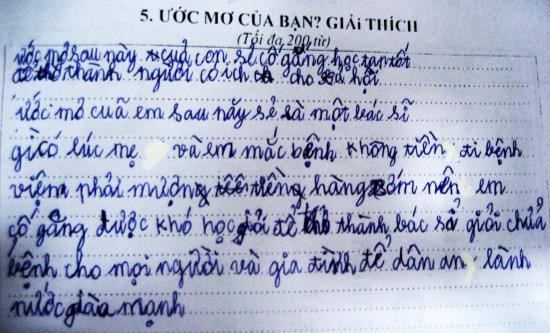 5. ƯỚC MƠ CỦA BẠN? GIẢI THÍCH
(Tối đa 200 từ)
ước mơ sau này của con sẻ cố gắng học tạp tốt
để thở thành người có ích cho xã hội
ước mơ cuã em sau nãy sẻ là một bác sĩ
gì có lúc mẹ và em mắc bệnh không tiền đi bệnh
viện phải mượng tiềng hàng sóm nên em
cố gắng được khó học giỏi để thở thành bác sả giỏi chửa
bệnh cho mọi người và gia đình để dân an lành
nước giàu mạnh